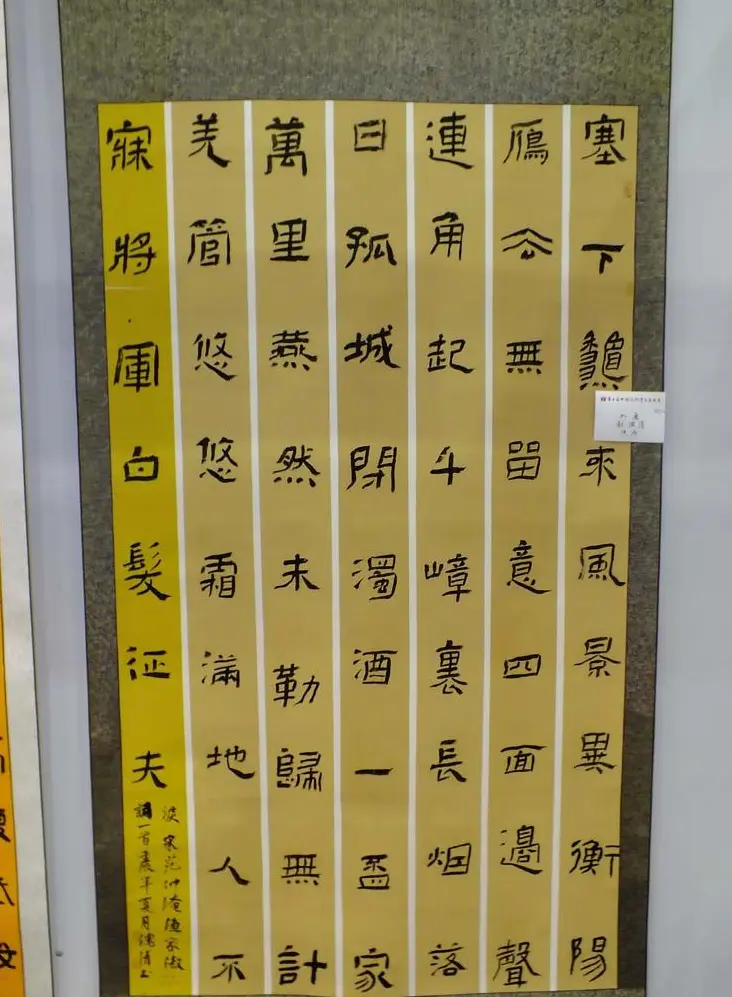 塞下龝來風景異衡陽
鴈去無留意四面邊聲
連角起千嶂裏長烟落
日孤城閉濁酒一盃家
萬里燕然未勒歸無計
羌管悠悠霜滿地人不
寐將軍白髮征夫
淚 宋范仲淹漁家傲
詞一首辰年夏月清书